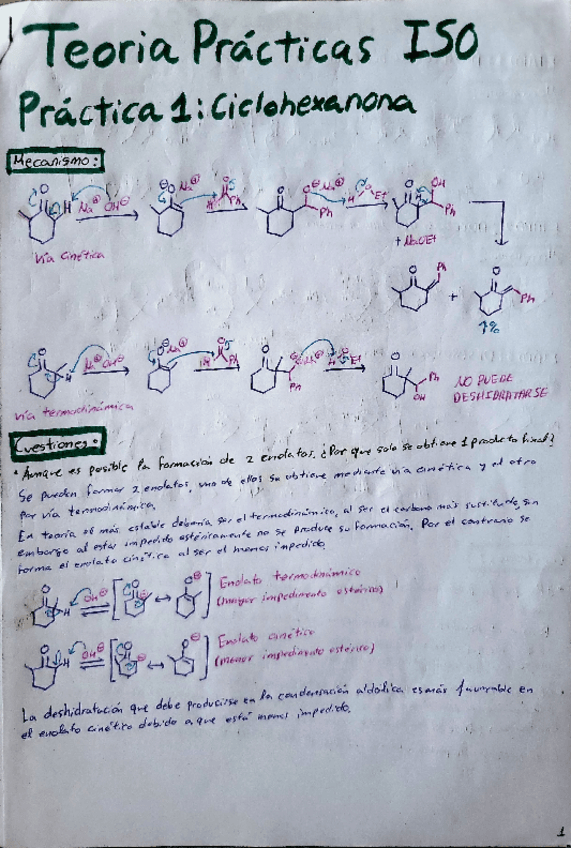 Teoria Prácticas ISO
Práctica 1: Ciclohexanona
Mecanismo:
O H Na⊕ OH⊖
O⊖ Na⊕ O H Ph
O O⊖ Na⊕ Ph H O Et
O OH H Ph
+ NaOEt
Vía cinética
O Ph + O Ph
1%
O H Na⊕ OH⊖
O⊖ Na⊕ O H Ph
O O⊖ Na⊕ Ph H O Et
O Ph OH
NO PUEDE
DESHIDRATARSE
Vía termodinámica
Cuestiones:
• Aunque es posible la formación de 2 enolatos. ¿Por que solo se obtiene 1 producto final?
Se pueden formar 2 enolatos, uno de ellos se obtiene mediante vía cinética y el otro
por vía termodinámica.
En teoría el más estable debería ser el termodinámico, al ser el carbono más sustituido, sin
embargo al estar impedido estéricamente no se produce su formación. Por el contrario se
forma el enolato cinético al ser el menos impedido.
O H OH⊖ ⇌ [O ⊖ ↔ O⊖] Enolato termodinámico
(mayor impedimento estérico)
O H OH⊖ ⇌ [O ⊖ ↔ O⊖] Enolato cinético
(menor impedimento estérico)
La deshidratación que debe producirse en la condensación aldólica es más favorable en
el enolato cinético debido a que está menos impedido.
1